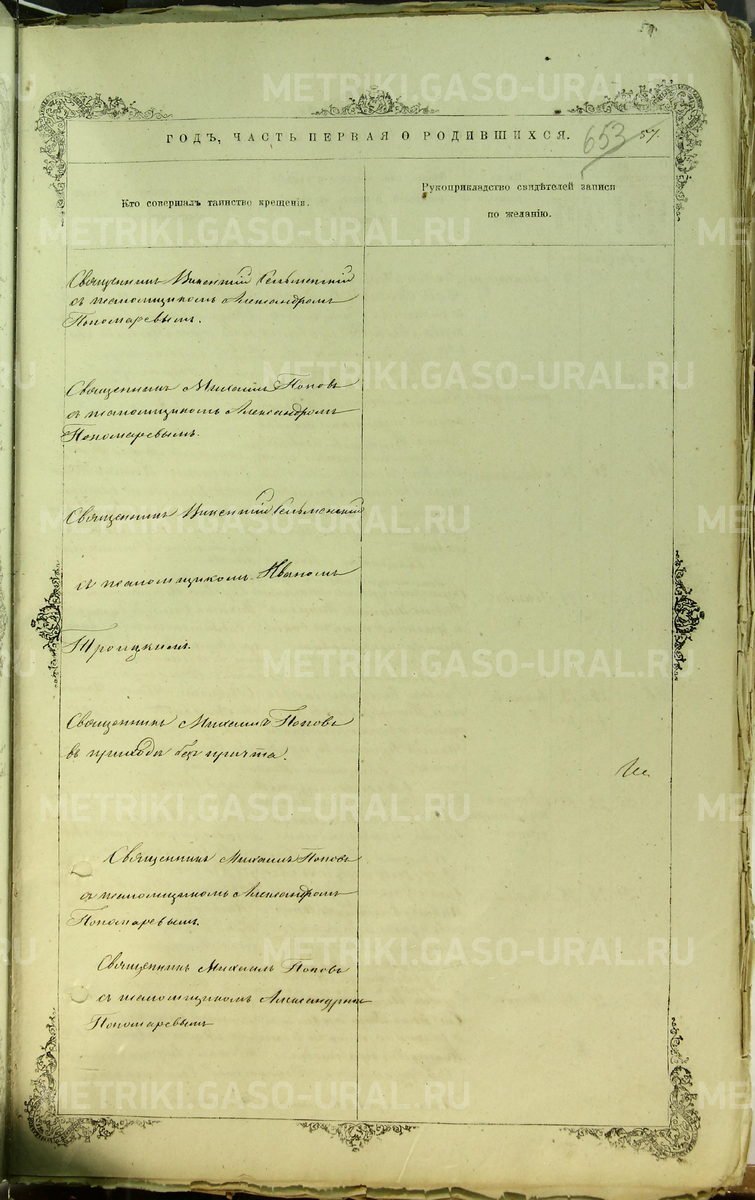 ГОДЪ, ЧАСТЬ ПЕРВАЯ О РОДИВШИХСЯ.
653
57.
Кто совершалъ таинство крещенія.
Рукоприкладство свидѣтелей записи
по желанію.
Священникъ Викентій Сельменскій
съ псаломщикомъ Александромъ
Пономаревымъ.
Священникъ Михаилъ Поповъ
съ псаломщикомъ Александромъ
Пономаревымъ.
Священникъ Викентій Сельменскій
съ псаломщикомъ Иваномъ
Троицкимъ.
Священникъ Михаилъ Поповъ
въ приходѣ безъ причта.
Священникъ Михаилъ Поповъ
съ псаломщикомъ Александромъ
Пономаревымъ.
Священникъ Михаилъ Поповъ
съ псаломщикомъ Александромъ
Пономаревымъ
METRIKI.GASO-URAL.RU